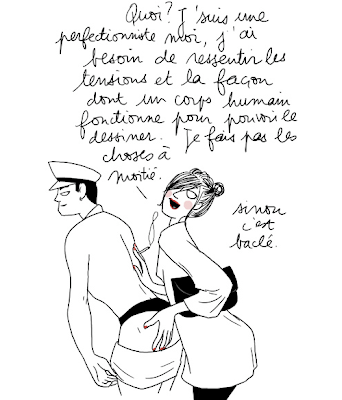 Quoi? J'suis une
perfectionniste moi, j'ai
besoin de ressentir les
tensions et la façon
dont un corps humain
fonctionne pour pouvoir le
dessiner. Je fais pas les
choses à
moitié.
sinon
c'est
baclé.